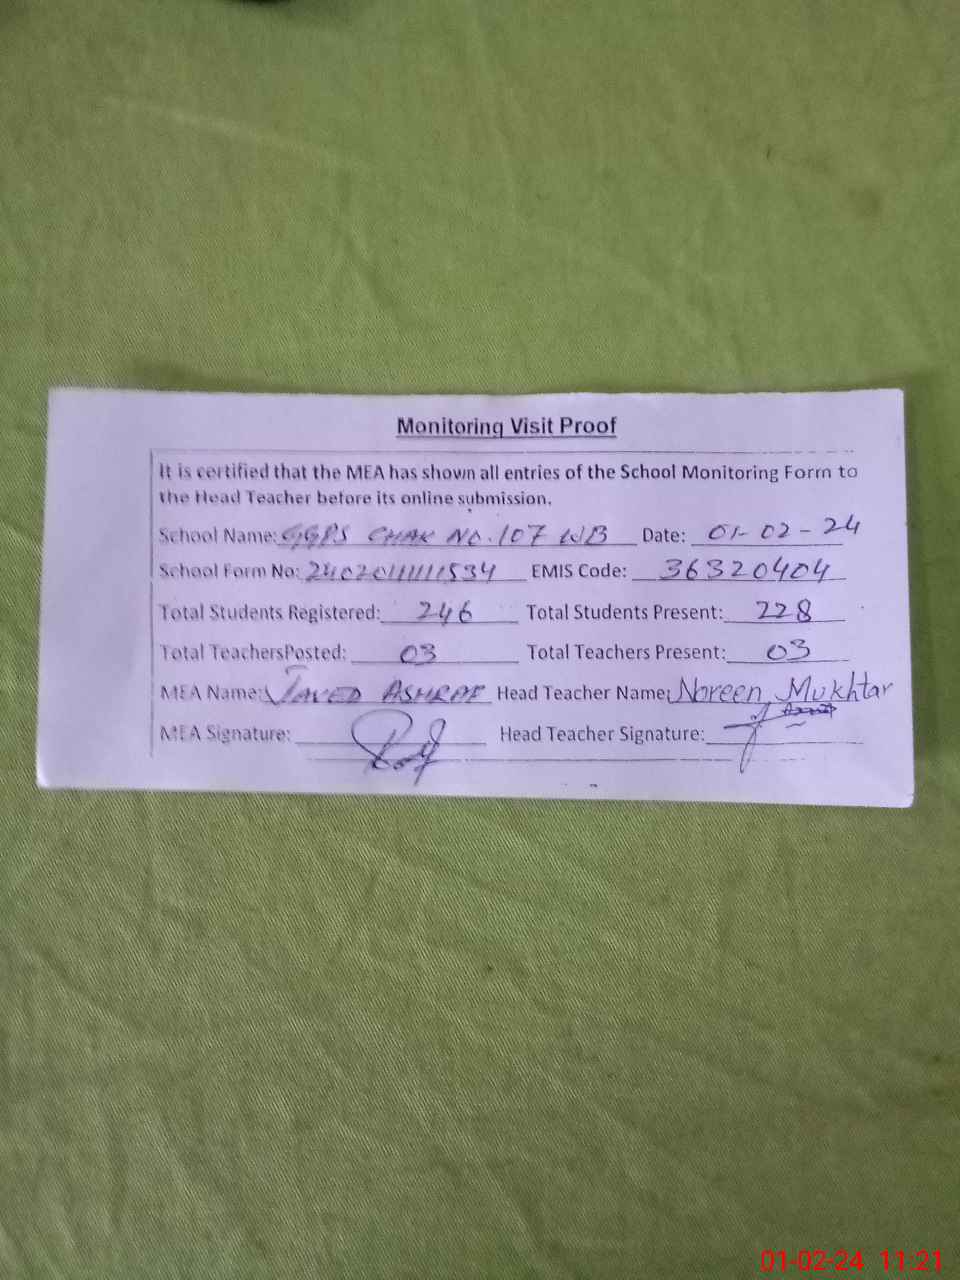 Monitoring Visit Proof
It is certified that the MEA has shown all entries of the School Monitoring Form to
the Head Teacher before its online submission.
School Name: GGPS CHAK NO. 107 WB Date: 01-02-24
School Form No: EMIS Code: 36320404
Total Students Registered: 246 Total Students Present: 228
Total TeachersPosted: 03 Total Teachers Present: 03
MEA Name: JAVED ASHRAF Head Teacher Name: Noreen Mukhtar
MEA Signature: Head Teacher Signature:
01-02-24 11:21